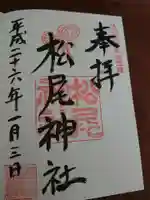 奉拝
松尾神社
平成二十六年一月三日